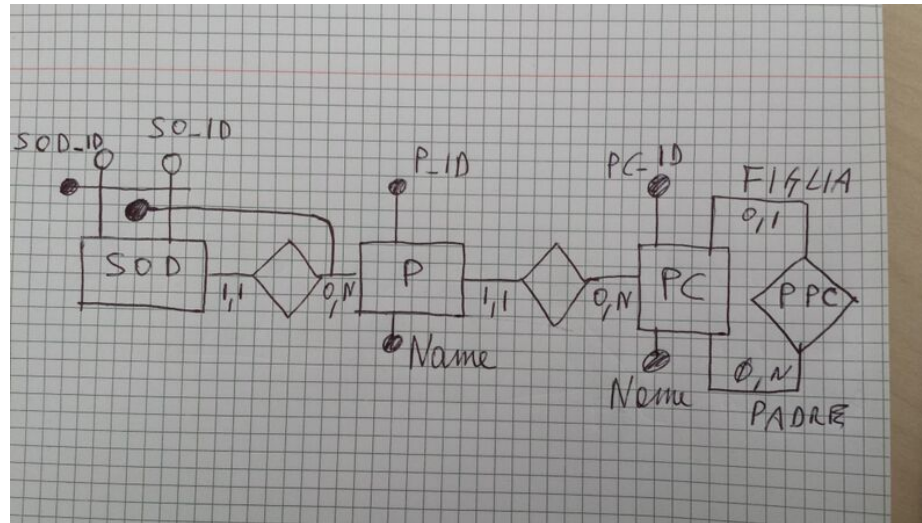 SOD_ID
SO_ID
P_ID
PC_ID
FIGLIA
0,1
SOD
1,1
0,N
P
1,1
0,N
PC
PPC
Name
Name
0,N
PADRE